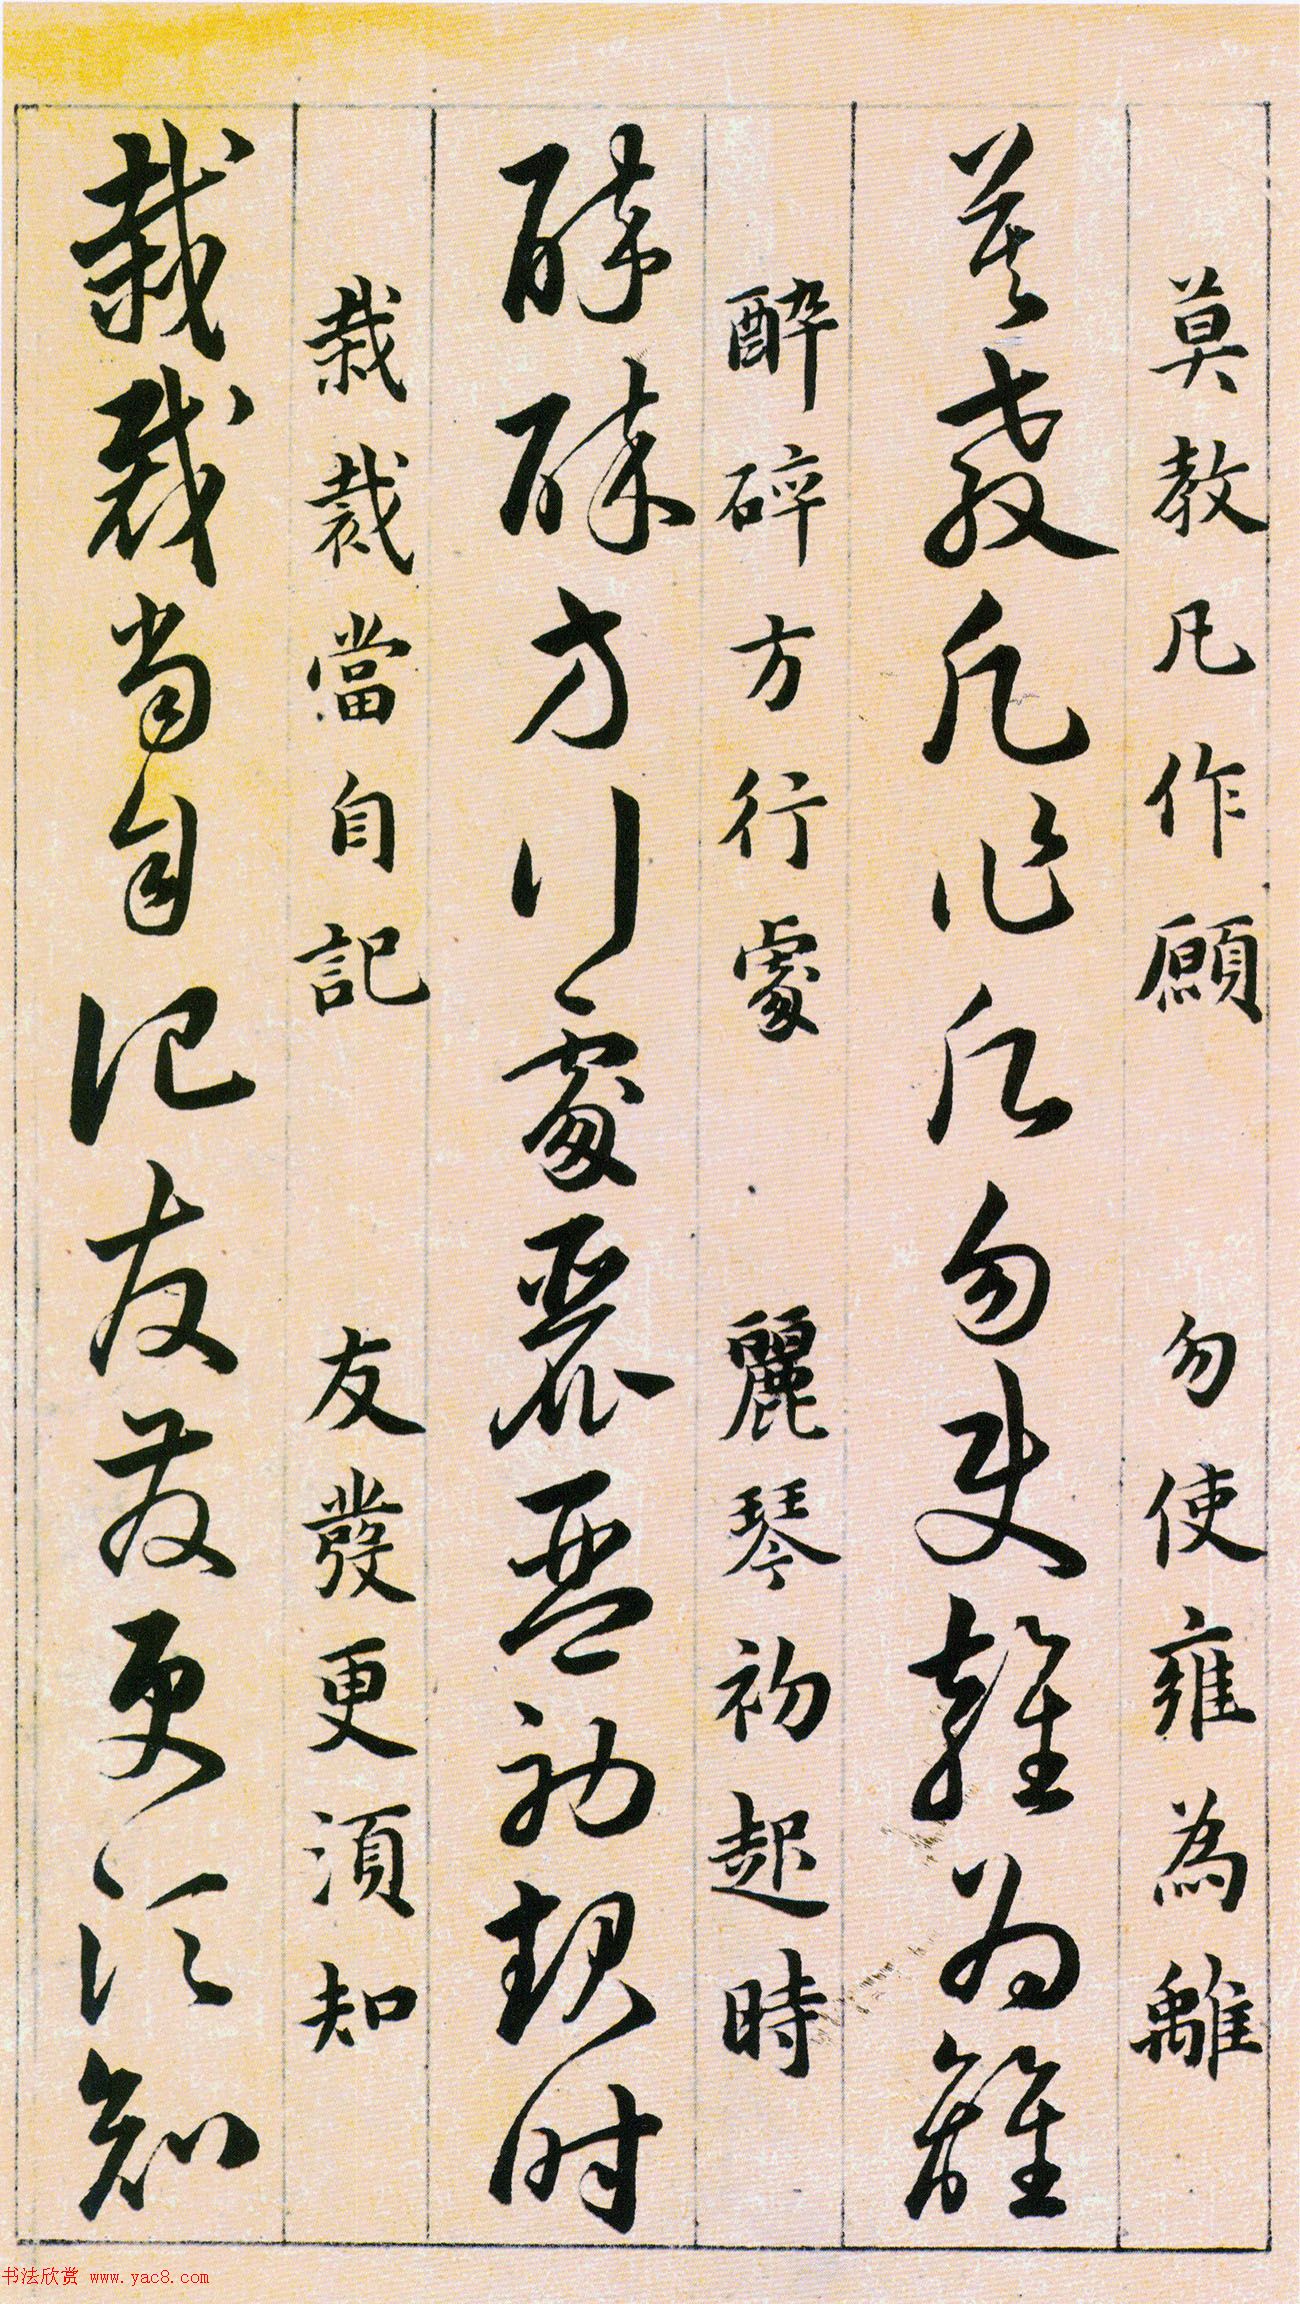 莫教凡作願 勿使雍為離
莫教凡作願勿使雍為離
醉碎方行處 麗琴初起時
醉碎方行處麗琴初起時
栽裁當自記 友發更湏知
栽裁當自記友發更湏知
书法欣赏 www.yac8.com